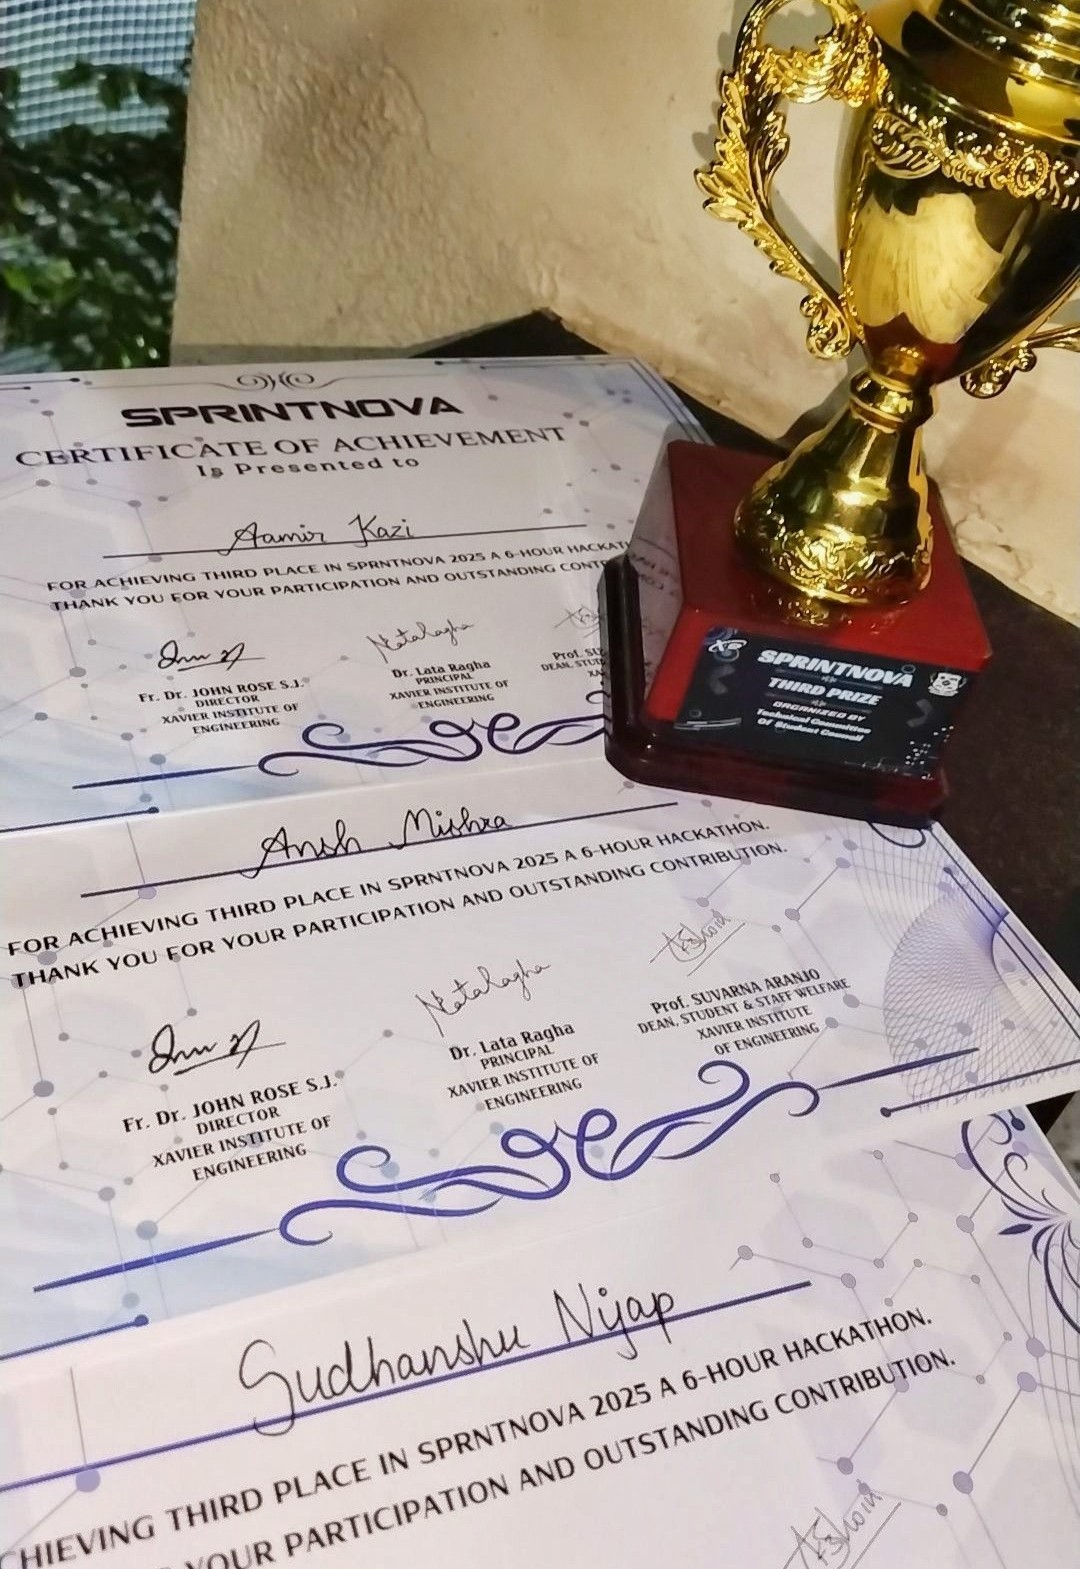 SPRINTNOVA
CERTIFICATE OF ACHIEVEMENT
Is Presented to
Aamir Kazi
FOR ACHIEVING THIRD PLACE IN SPRNTNOVA 2025 A 6-HOUR HACKATH
THANK YOU FOR YOUR PARTICIPATION AND OUTSTANDING CONTR
Fr. Dr. JOHN ROSE S.J.
DIRECTOR
XAVIER INSTITUTE OF
ENGINEERING
Dr. Lata Ragha
PRINCIPAL
XAVIER INSTITUTE OF
ENGINEERING
Prof. SU
DEAN, STUD
XA
SPRINTNOVA
THIRD PRIZE
ORGANIZED BY
Technical Committee
Of Student Council
Ansh Mishra
FOR ACHIEVING THIRD PLACE IN SPRNTNOVA 2025 A 6-HOUR HACKATHON.
THANK YOU FOR YOUR PARTICIPATION AND OUTSTANDING CONTRIBUTION.
Fr. Dr. JOHN ROSE S.J.
DIRECTOR
XAVIER INSTITUTE OF
ENGINEERING
Dr. Lata Ragha
PRINCIPAL
XAVIER INSTITUTE OF
ENGINEERING
Prof. SUVARNA ARANJO
DEAN, STUDENT & STAFF WELFARE
XAVIER INSTITUTE
OF ENGINEERING
Sudhanshu Nijap
CHIEVING THIRD PLACE IN SPRNTNOVA 2025 A 6-HOUR HACKATHON.
YOUR PARTICIPATION AND OUTSTANDING CONTRIBUTION.